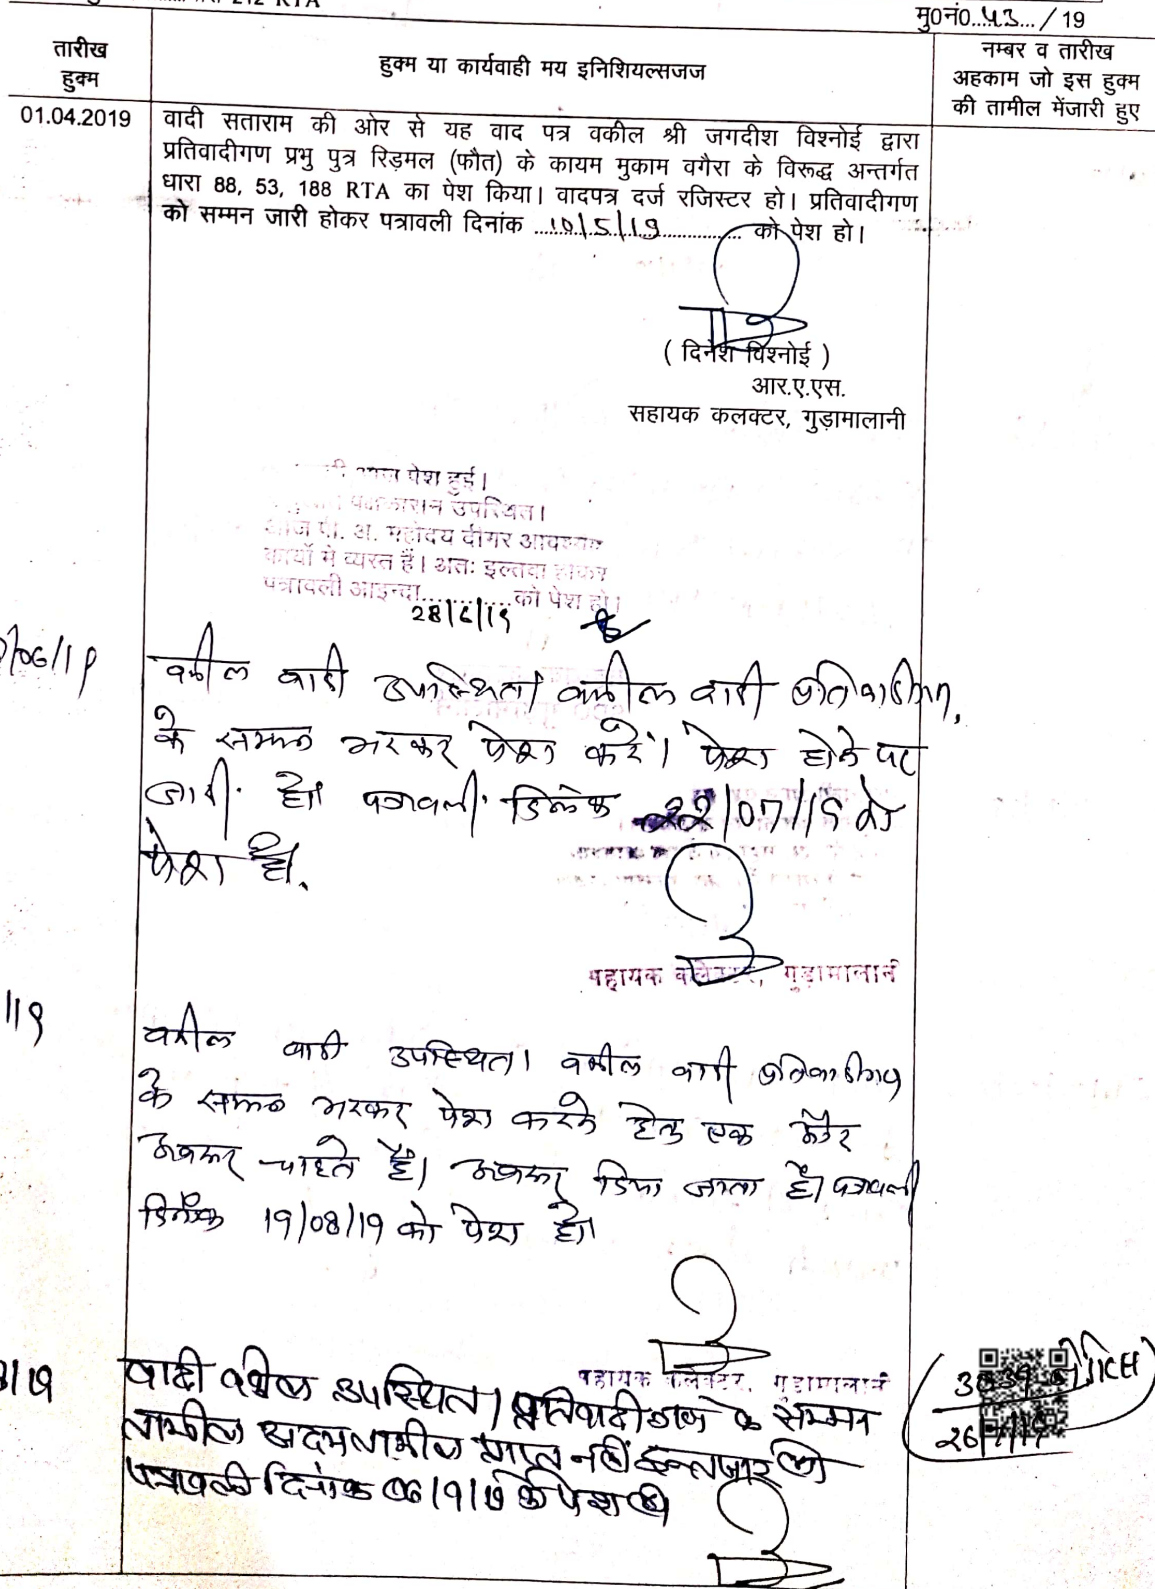 212 RTA
मु0नं0..43.../19
तारीख
हुक्म
हुक्म या कार्यवाही मय इनिशियल्सजज
नम्बर व तारीख
अहकाम जो इस हुक्म
की तामील मेंजारी हुए
01.04.2019
वादी सताराम की ओर से यह वाद पत्र वकील श्री जगदीश विश्नोई द्वारा
प्रतिवादीगण प्रभु पुत्र रिड़मल (फौत) के कायम मुकाम वगैरा के विरूद्ध अन्तर्गत
धारा 88, 53, 188 RTA का पेश किया। वादपत्र दर्ज रजिस्टर हो। प्रतिवादीगण
को सम्मन जारी होकर पत्रावली दिनांक ...10/5/19... को पेश हो।
( दिनेश विश्नोई )
आर.ए.एस.
सहायक कलक्टर, गुड़ामालानी
पेश हुई।
उपस्थित।
आज पी. अ. महोदय दीगर आवश्यक
कार्यो मे व्यस्त हैं। अतः इल्तवा होकर
पत्रावली आइन्दा..........को पेश हो।
28/6/19
/06/19
वकील वादी उपस्थित। वकील वादी प्रतिवादीगण
के सम्मन भरकर पेश करें। पेश होने पर
जारी हो। पत्रावली दिनांक 22/07/19 को
पेश हो।
सहायक कलेक्टर, गुड़ामालानी
/19
वकील वादी उपस्थित। वकील वादी प्रतिवादीगण
के सम्मन भरकर पेश करने हेतु एक और
अवसर चाहते हैं। अवसर दिया जाता है। पत्रावली
दिनांक 19/08/19 को पेश हो।
सहायक कलेक्टर, गुड़ामालानी
/19
वादी वकील उपस्थित। प्रतिवादीगण के सम्मन
तामील अदमतामील प्राप्त नहीं इन्तजार हो
पत्रावली दिनांक 06/9/19 को पेश हो